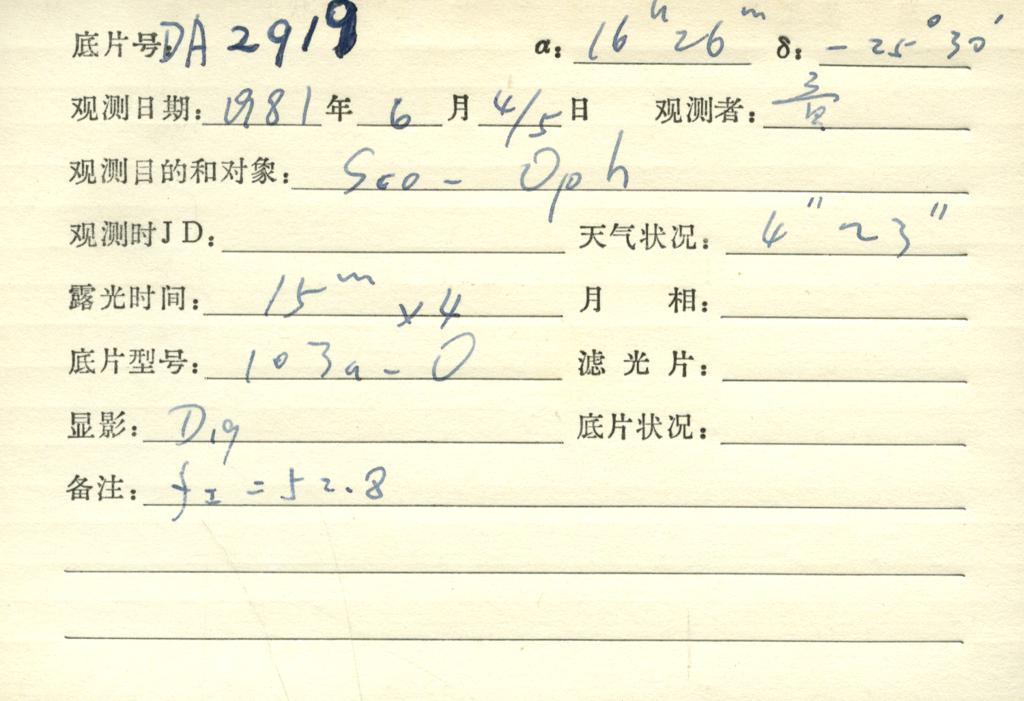 底片号: DA 2919 α: 16h 26m δ: -25° 30′
观测日期: 1981 年 6 月 4/5 日 观测者: 黄
观测目的和对象: Sco - Oph
观测时JD: 天气状况: 4″ 23″
露光时间: 15m ×4 月 相:
底片型号: 103a-O 滤光片:
显影: D19 底片状况:
备注: fI = 52.8